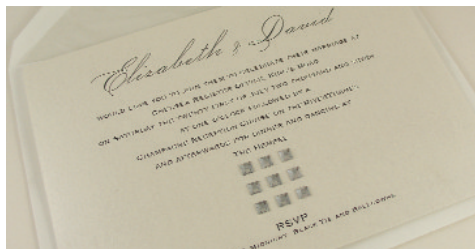 Elizabeth & David
WOULD LOVE YOU TO JOIN THEM TO CELEBRATE THEIR MARRIAGE AT
CHELSEA REGISTER OFFICE, KING'S ROAD
ON SATURDAY THE TWENTY FIRST OF JULY TWO THOUSAND AND
AT ONE O'CLOCK FOLLOWED BY A
CHAMPAGNE RECEPTION CRUISE ON THE
AND AFTERWARDS FOR DINNER AND DANCING AT
THE HEMPEL
RSVP
MIDNIGHT, BLACK TIE AND